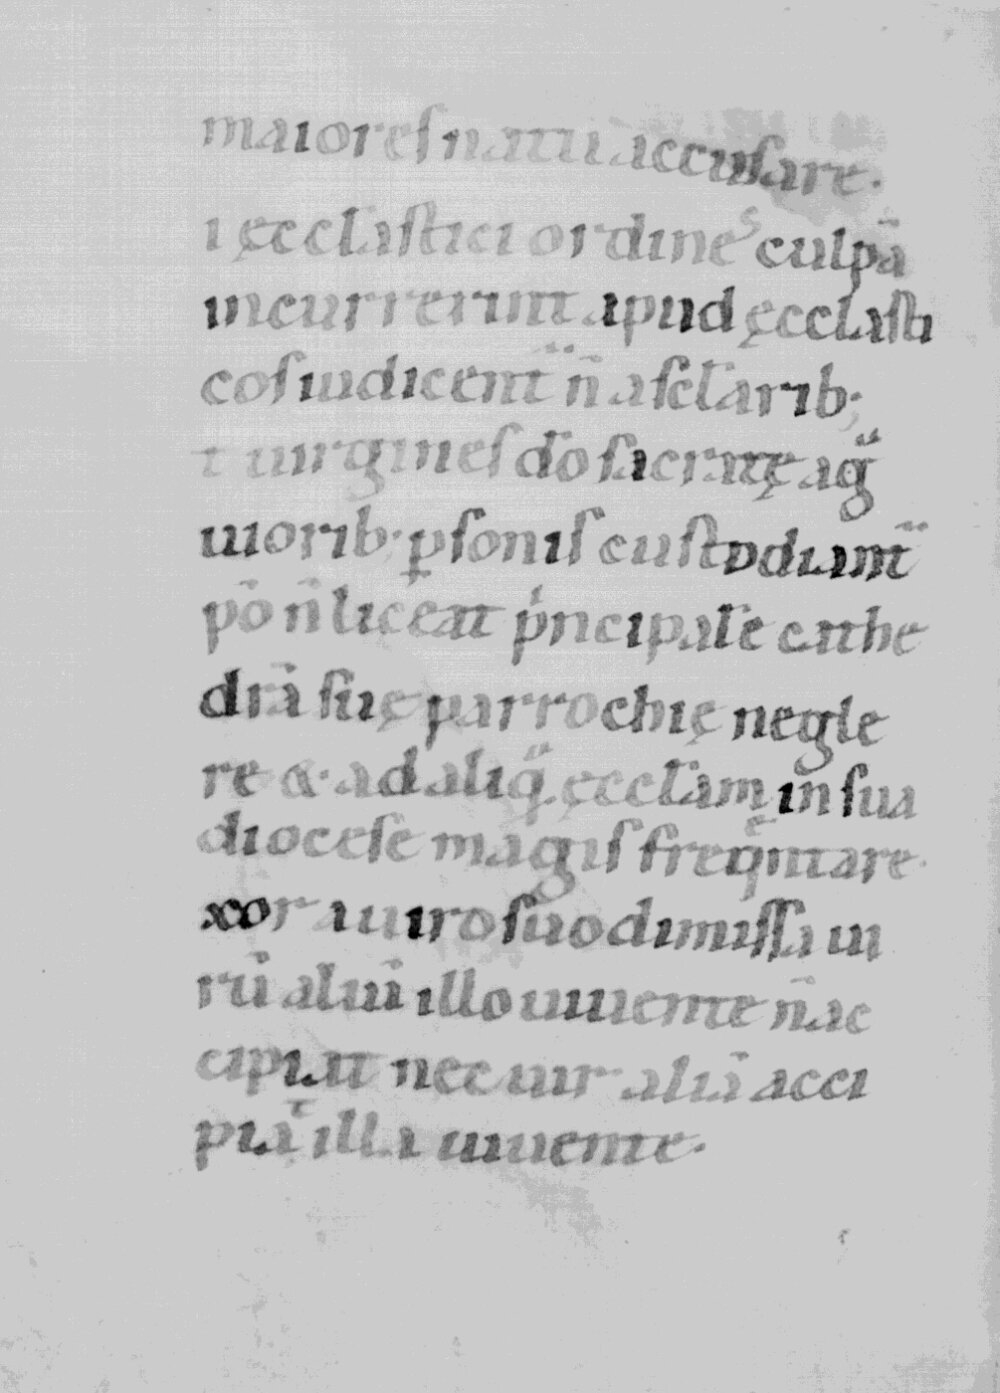 maiores natu accusare.
i ęccl̄astici ordine^s culpā
incurrerint apud ęcclasti
cos iudicent̄ n̄ a sc̄l̄arib;
t uirgines dō sacratę a g^a
uiorib; ꝑsonis custodiant̄
pō n̄ liceat p^incipale cathe
drā suę parrochię negle
re & ad aliq^a ęccl̄am in sua
diocese magis freq^entare.
xor a uiro suo dimissa ui
rū aliū illo uiuente n̄ ac
cipiat nec uir aliā acci
pia^t illa uiuente.